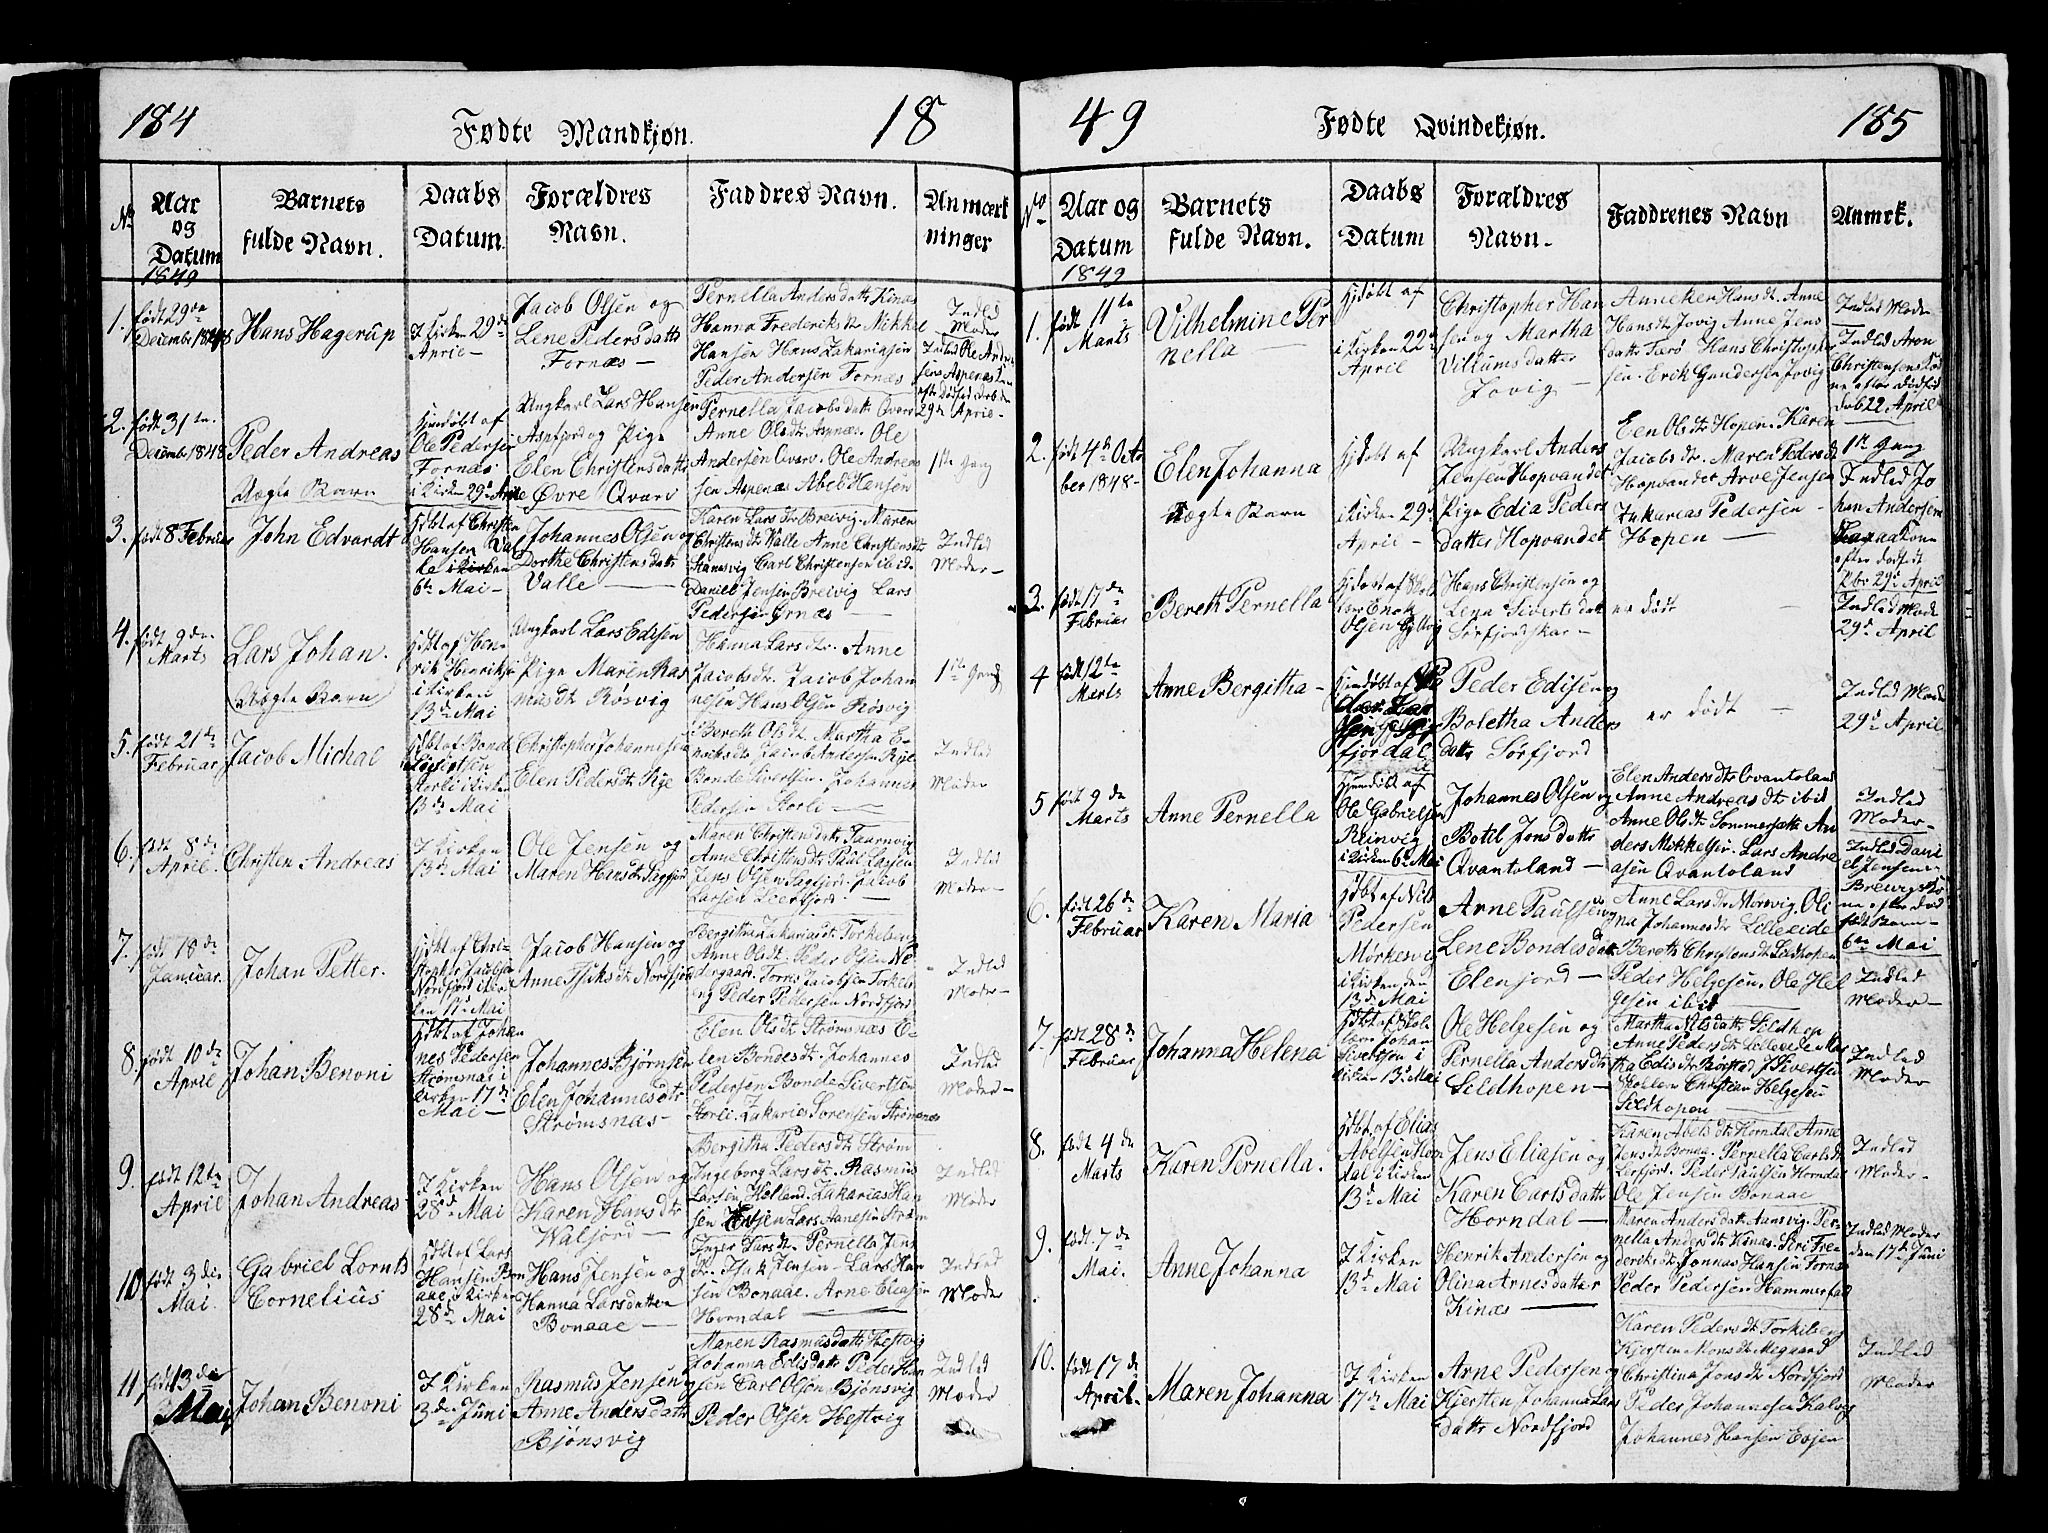 184
Fødte Mandkjøn.
18
No
Aar og Datum
Barnets fulde Navn.
Daabs Datum.
Forældres Navn.
Faddres Navn.
Anmærkninger
1849
1.
født 29de
Decembr 1848
Hans Hagerup
I Kirken 29de
April
Jacob Olsen og
Lene Pedersdatt
Fornæs
Pernella Andersdatt Kinæs
Hanna Frederiksdt Mikkel
Hansen Hans Zakariasen
Peder Andersen Fornæs
Indled
Moder
2.
født 31te
Decembr 1848
Peder Andreas
Uægte Barn
hjemdøbt af
Ole Pedersen
Fornæs
i Kirken 29de April
Ungkarl Lars Hansen
Aspfjord og Pige
Elen Christensdatt
Øvre Qvarv
Pernella Jacobsdatt Qvarv
Anne Olsdt Aspnæs. Ole
Andersen Qvarv. Ole Andrea
sen Aspenæs Abel Hansen
1ste Gang
3.
født 8 Februar
John Edvardt
hjdbt af Christen
Hansen Val
le i Kirken
6te Mai
Johannes Olsen og
Dorthe Christensdatt
Valle
Karen Larsdtr Breivig. Maren
Christensdt Valle Anne Christensdt
Stamsvig Carl Christensen ibid.
Daniel Jensen Breivig Lars
Pedersen Grnæs
Indled
Moder
4.
født 9de
Marts
Lars Johan.
Uægte Barn
hjdbt af Hen
rik Henriksen
i Kirken
13de Mai
Ungkarl Lars Edisen
Pige Maren Ras
musdt Røsvig
Hanna Larsdtr. Anne
Jacobsdt. Jacob Johan
nesen Hans Olsen Røsvig
1ste Gang
5.
født 21de
Februar
Jacob Michal
hjdbt af Bonde
Sivertsen
Storli i Kirken
13de Mai
Christopher Johannesen
Elen Pedersdt Rye
Bereth Olsdt. Martha E-
riksdt. Jacob Andersen Rye
Bonde Sivertsen. Johannes
Pedersen Storli
Indled
Moder
6.
født 8de
April.
Christen Andreas
I Kirken
13de Mai
Ole Jensen og
Maren Hansdt Sagfjord
Maren Christensdatt Taarnvig
Anne Christensdt Paul Larsen
Jens Olsen Sagfjord. Jacob
Larsen Leerfjord.
Indled
Moder
7.
født 18de
Januar.
Johan Petter.
hjdbt af Chri-
stopher Paulsen
Nordfjord i Kir-
ken 17de Mai
Jacob Hansen og
Anne Isaksdt Nordfjord
Bergitha Zakariasdt. Torkelberg
Anne Olsdt. Peder Olsen Ne
dergaard. Tørris Jacobsen Torkels
og Peder Pedersen Nordfjord
Indled
Moder
8.
født 10de
April
Johan Benoni
hjdbt af Johan
nes Pedersen
Strømsnæs i
Kirken 17de
Mai
Johannes Bjørnsen
Elen Johannesdtr
Strømsnas
Elen Olsdt Strømsnæs E-
len Bondesdt. Johannes
Pedersen Bonde Sivertsen
Storli. Zakarias Sørensen Strømsnæs
Indled
Moder
9.
født 12te
April
Johan Andreas
I Kirken
28de Mai
Hans Olsen og
Karen Hansdt
Waljord
Bergitha Pedersdt Strøm
Ingeborg Larsdt. Rasmus
Larsen Helland. Zakarias Han
sen Lars Aanesen Strøm
Indled
Moder
10
født 3die
Mai.
Gabriel Lornts
Cornelius
hjdbt af Lars
Hansen Bon
aae i Kirken
28de Mai
Hans Jensen og
Hanna Larsdatter
Bonaae
Inger Larsdt. Pernella Jens
dt. Isak Jensen Lars Han
sen Bonaae. Arne Eliasen
Horndal
Indled
Moder
11
født 13de
Mai
Johan Benoni
I Kirken
3die Juni
Rasmus Jensen og
Anne Andersdatt
Bjønsvig
Maren Rasmusdatt Hestvig
Johanna Edisdatt Peder Han
sen Carl Olsen Bjønsvig
Peder Olsen Hestvig
Indled
Moder
49
Fødte Qvindekjøn.
185
No
Aar og Datum
Barnets fulde Navn.
Daabs Datum
Forældres Navn.
Faddrenes Navn
Anmrk.
1849
1.
født 11te
Marts
Vilhelmine Per
nella
hjdøbt af
i Kirken 22de
April
Christopher Han
sen og Martha
Villumsdatter
Jovig
Anneken Hansdt. Anne
Hansdt Jovig Anne Jens
datt Færø Hans Christopher
sen. Erik Gundersen Jovig
Indled Moder
Indled Aron
Christensens Ko
ne efter dødfød
Dreb 22 April
2.
født 4de Octo
ber 1848
Elen Johanna
Uægte Barn
hjdøbt af
i Kirken 29de
April
Ungkarl Anders
Jensen Hopvandet
Pige Edia Peders
datter Hopvandet
Een Olsdt Hopen. Karen
Jacobsdt. Maren Pedersdt
Hopvandet Arve Jensen
Zakarias Pedersen
Hopen
1ste Gang
Indled Jo
han Andersens
Kone
efter dødfødt
Dbr 29de April
3.
født 17de
Februar
Bereth Pernella
Hans Christensen og
Lena Sivertsdatt
Sørfjordskar
er død
Indled Mode
29de April
4
født 12te
Marts
Anne Bergitha
Peder Edisen og
Boletha Anders
datt Sørfjord
er død
Indled Mode
29de April
5
født 9de
Marts
Anne Pernella
hjemdøbt af
Ole Gabrielsen
Reinvig
i Kirken 6te Mai
Johannes Olsen og
Botel Jensdatt
Qvantoland
Elen Andersdtr Qvantoland
Anne Andreasdt ibid
Anne Olsdt Sommersætt An
ders Mikkelsen. Lars Andre
asen Qvantoland
Indled
Moder
Indled Dani
el Jensens
Breivig Ko
ne efter død
født Barn
6te Mai
6.
født 26de
Februar
Karen Maria
hjdbt af Nils
Pedersen
Mørkesvig
i Kirken den
13de Mai
Arne Paulsen og
Lene Bondesdatt
Elenfjord
Anne Larsdt Mørsvig. Oli
na Johannesdt Lilleeide
Bereth Christensdt Sildhopen
Peder Helgesen. Ole Hel
gesen ibid
Indled
Moder
7.
født 28de
Februar
Johanna Helena
hjdbt af Skol
lær. Johan
Sivertsen i
Kirken 13de Mai
Ole Helgesen og
Pernella Andersdt
Sildhopen
Martha Nilsdatt Sildhop
Anne Pedersdt Lilleeide Mar
tha Edisdt Bøstad J Sivertsen
Skollær Christian Helgesen
Sildhopen
Indled
Moder
8.
født 4de
Marts
Karen Pernella.
hjdbt af Elias
Abelsen Horn
dal i Kirken
13de Mai
Jens Eliasen og
Karen Carlsdatt
Horndal
Karen Abelsdt Horndal Anne
Jensdt Bonaa. Pernella Carlsdt
Lerfjord. Peder Paulsen Horndal
Ole Jensen Bonaae
Indled
Moder
9.
født 7de
Mai.
Anne Johanna
I Kirken
13de Mai
Henrik Andersen og
Olina Arnesdatter
Kinæs
Maren Andersdatt Aansvig. Per-
nella Andersdt Kinæs. Siri Fre-
deriksdt Jonnas Hansen Fornæs
Peder Pedersen Hammerfal
Indled Moder
den 17de Juni
10.
født 17de
April.
Maren Johanna
I Kirken
17de Mai
Arne Pedersen og
Kjersten Johanna Lars
datt Nordfjord
Karen Pedersdt Torkelberg
Kjersten Monsdt Megaard
Christina Jonsdt Nordfjord
Peder Johannesen Kalvig
Johannes Hansen Evjen
Indled
Moder